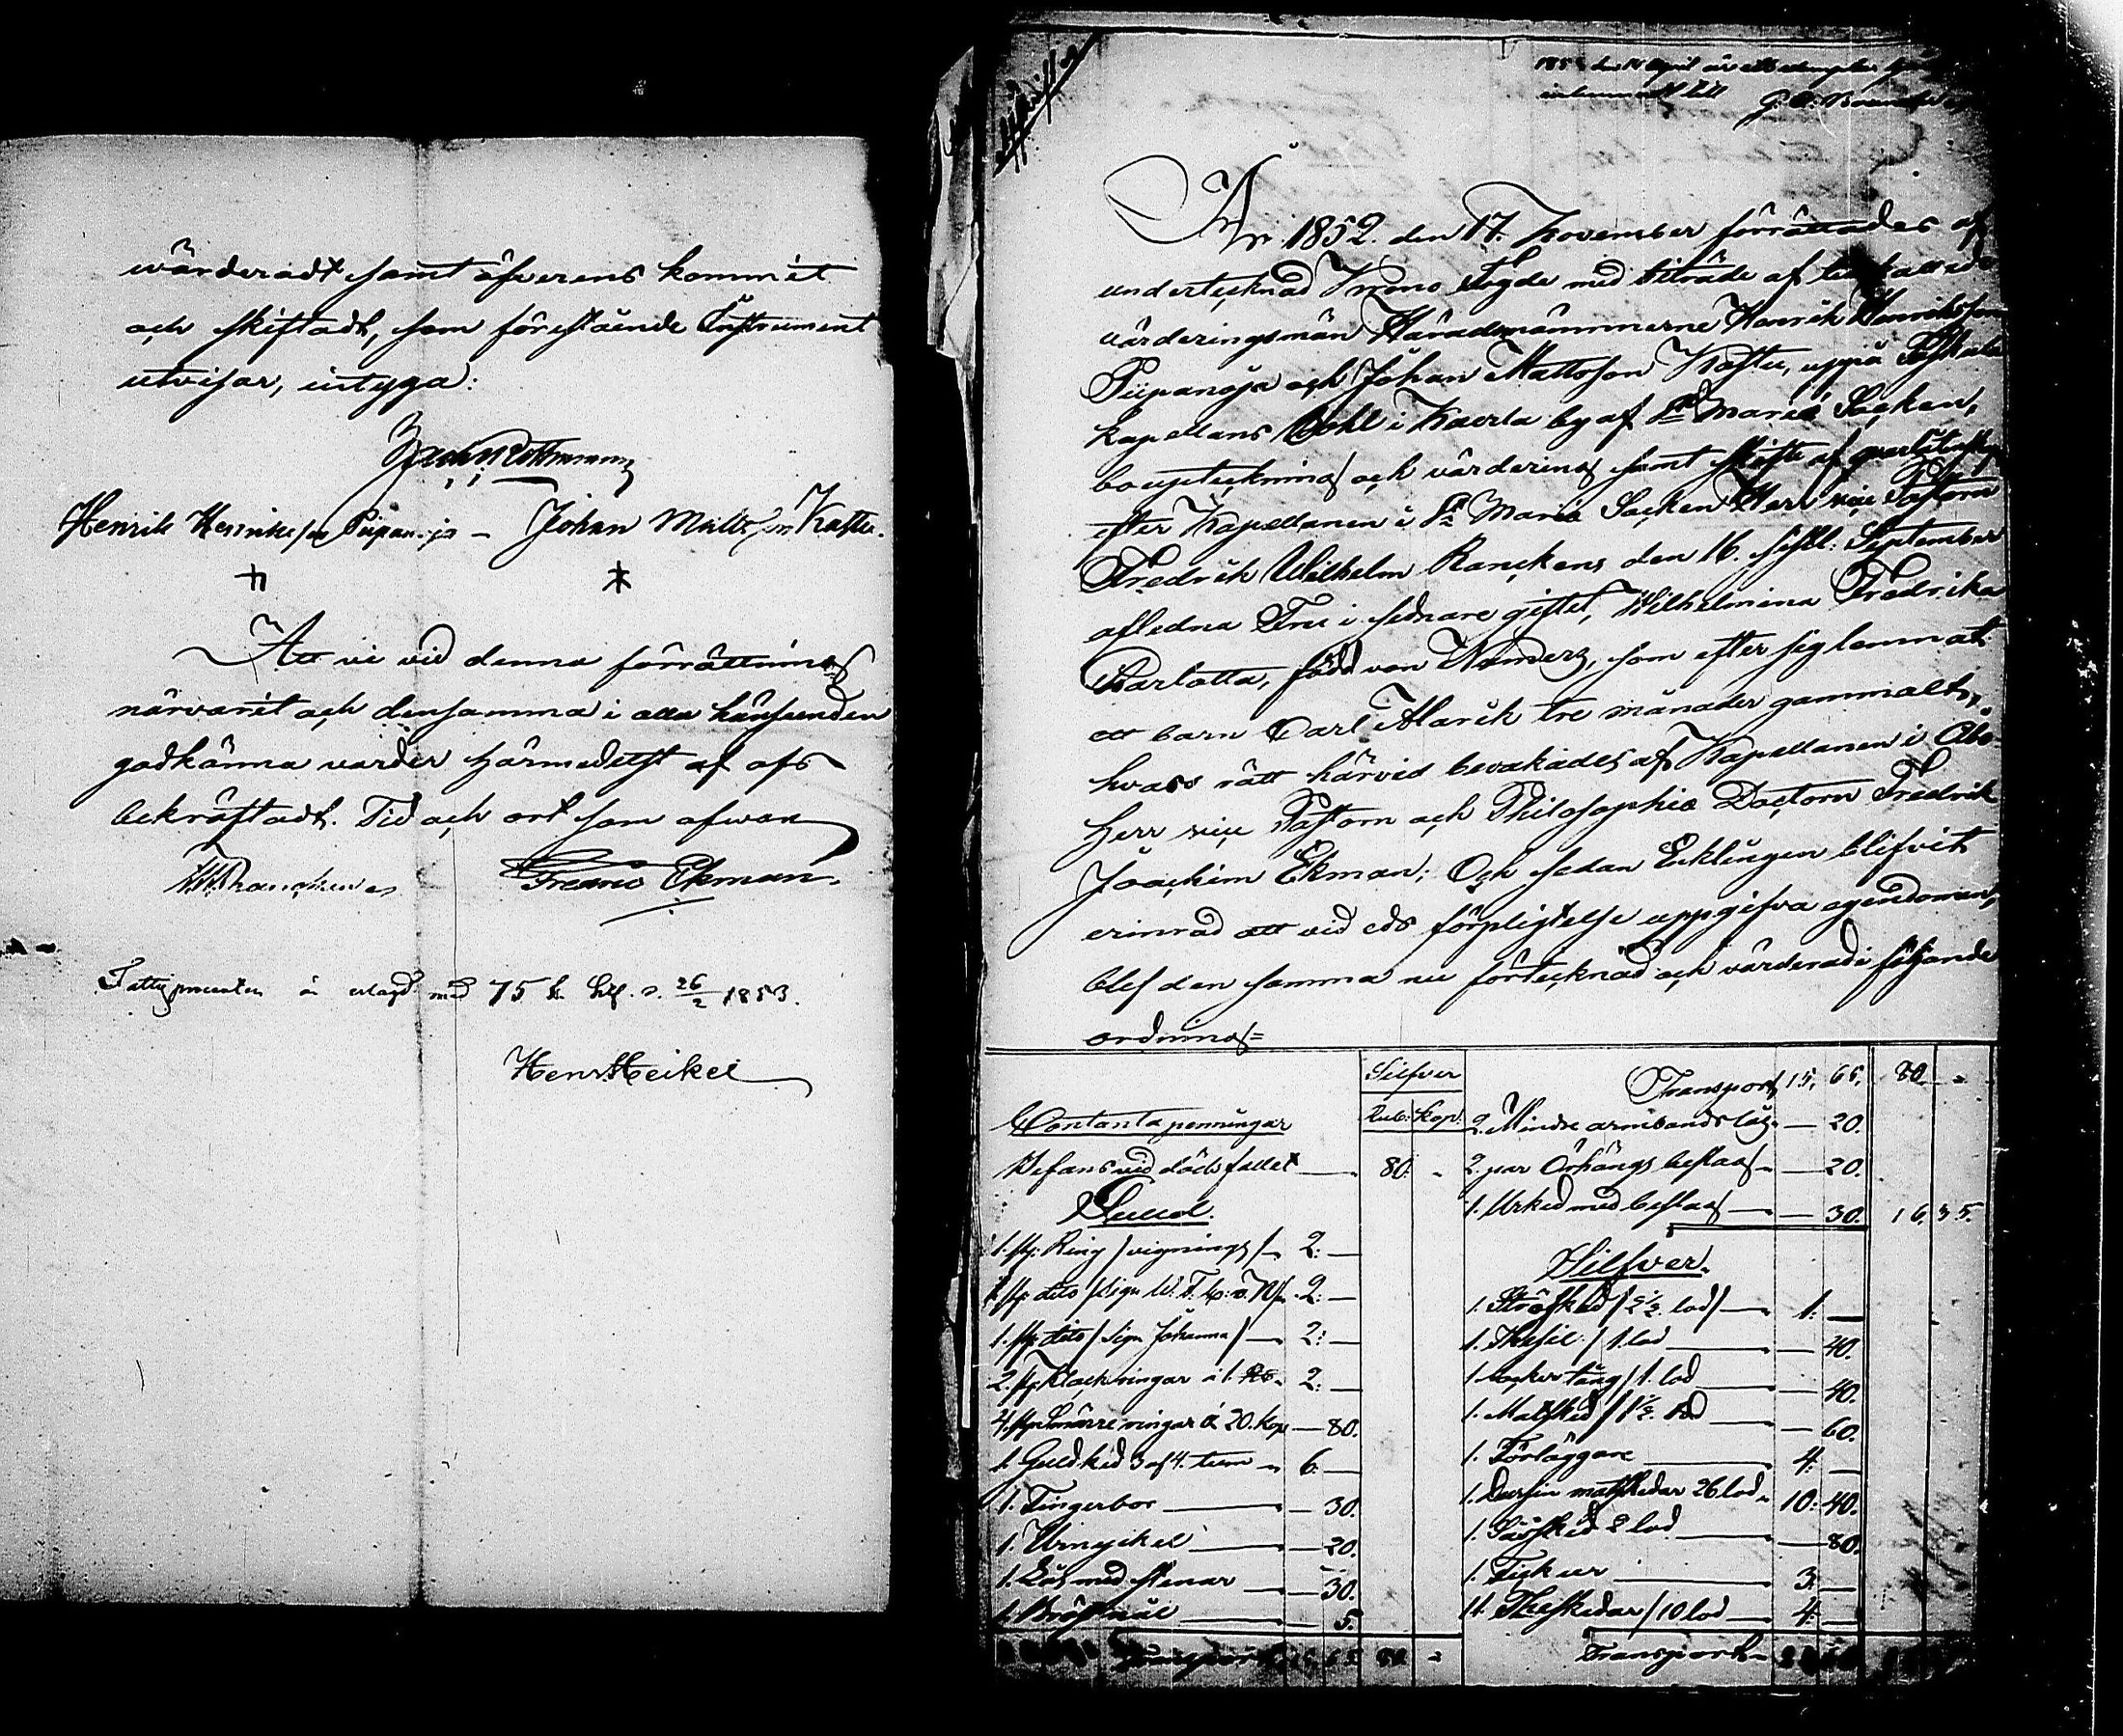 wärderadt samt öfverens kommit
och skiftadt, som förestående Instrument
utvisar, intyga:
Henrik Henriksson Piipanoja – Johan Mattsson Kastu.
Att vi vid denna förrättning
närvarit och densamma i alla hänseenden
godkänna varder härmedelst af oss
bekräftadt. Tid och ort som ofvan
Fredric Ekman.
Fattigprocenten är erlagd med 75 k. Slf. d. 26/2 1853.
Henr. Heikel
1853 den April är ett exemplar
inlemnadt till
År 1852. den 17. November förrättades af
undertecknad Krono Fogde med biträde af tillkallade
värderingsmän Häradsnämnmännerne Henrik Henriksson
Piipanoja och Johan Mattsson Kastu, uppå
kapellans Bohl i Kaerla by af S:t Mariæ Socken,
bouptecknings och värderings samt skifte af qvarlåtenskap
efter Kapellanen i S:t Mariæ Socken Herr vice Pastorn
Fredrik Wilhelm Ranckens den 16. sistl: September
aflidna Fru i sednare giftet, Wilhelmina Fredrika
Charlotta, född von Numers, som efter sig lemnat
ett barn Carl Alarik tre månader gammalt,
hvars rätt härvid bevakades af Kapellanen i Åbo
Herr vice Pastorn och Philosophiæ Doctorn Fredrik
Joachim Ekman; Och sedan Enklingen blifvit
erinrad att vid eds förpligtelse uppgifva egendomen,
blef den samma nu förtecknad och värderad i följande
ordning=
Silfver
Rub: Kop:
Contanta penningar
Befans vid dödsfallet — 80. -
Guld.
1. st: Ring /vignings/ 2: —
1. st: dito /sign W: F: C: v. N/ 2: —
1. st: dito /sign Johanna/ — 2: —
2. st: Klackringar á 1. Rb. 2: —
4. st: Smärre ringar á 20. Kop — 80.
1. Guldked 3 af 4. tum 6. —
1. Fingerbor — 30.
1. Urnyckel — 20.
1. Lås med stenar — 30.
1. Bröstnål — 5.
Transport 15. 65. 80. -
Transport 15. 65. 80. -
2. Mindre armbandslås — 20.
2. par Örhängs beslag — 20.
1. Urked med beslag — 30. 16. 35.
Silfver.
1. Ströskèd /2½. lod/ — 1: —
1. Thesil / 1. lod — 40.
1. Sockertång / 1. lod — 40.
1. Matsked / 1½. lod — 60.
1. Förläggare — 4: —
1. Dussin matskedar 26 lod 10: 40.
1. Såssked 2 lod — 80.
1. — 3: —
11. Theskedar / 10 lod — 4: —
Transport